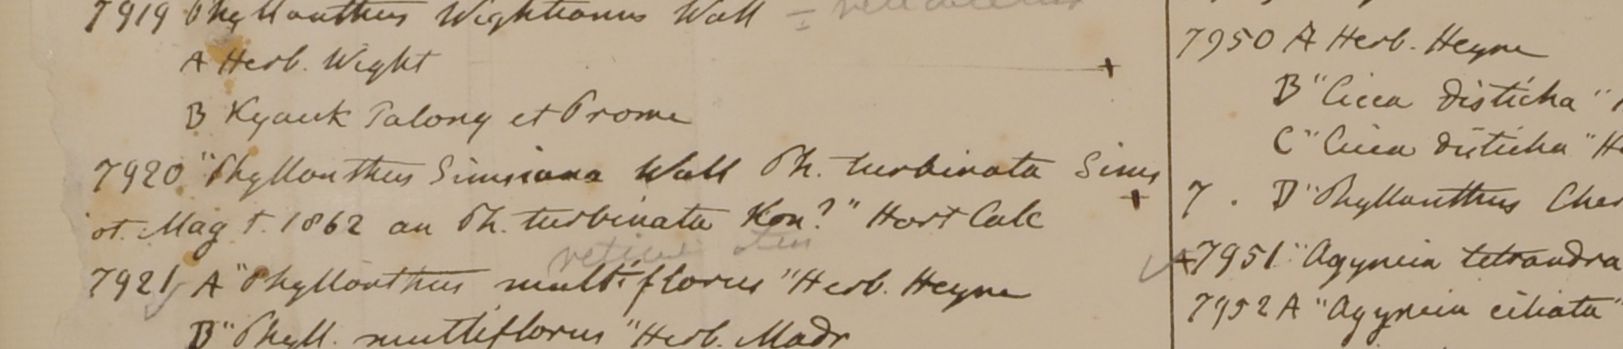 7919 Phyllanthus Wightianus Wall =
A Herb. Wight
B Kyauk Talong et Prome
7920 "Phyllanthus Simsiana Wall Ph. turbinata Sims
ot. Mag t. 1862 an Ph. turbinata Kon?" Hort Calc
7921 A "Phyllanthus multiflorus" Herb. Heyne
B "Phyll. multiflorus" Herb. Madr
7950 A Herb. Heyne
B "Cicca disticha"
C "Cicca disticha" H
7 . D "Phyllanthus Cher
7951 "Agyneia tetrandra
7952 A "Agyneia ciliata